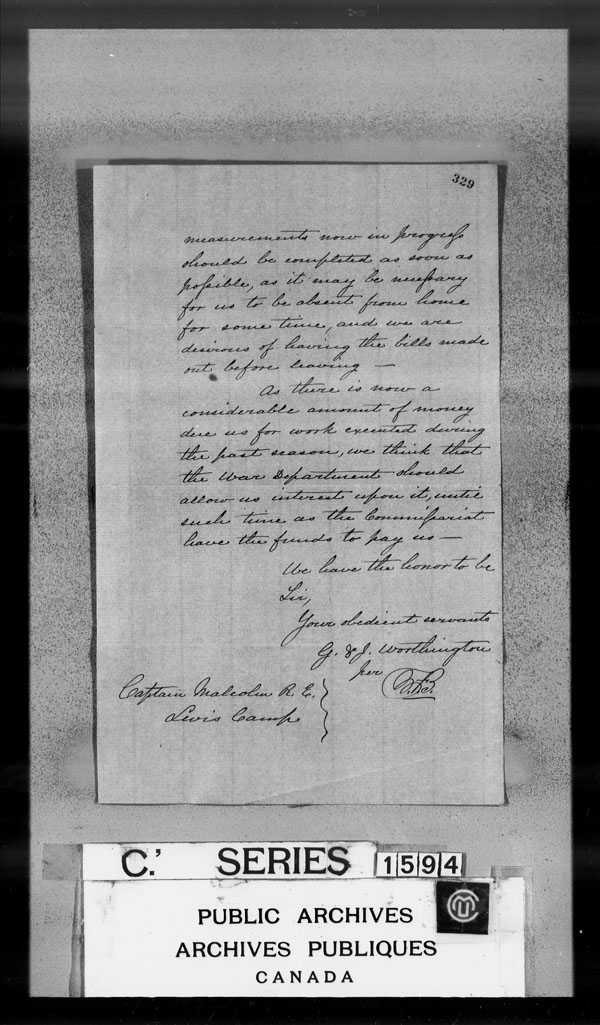 329
measurements now in progress
should be completed as soon as
possible, as it may be necessary
for us to be absent from home
for some time, and we are
desirous of having the bills made
out before leaving —
As there is now a
considerable amount of money
due us for work executed during
the past season, we think that
the War Department should
allow us interest upon it, until
such time as the Commissariat
have the funds to pay us —
We have the honor to be
Sir,
Your obedient servants
G. & J. Worthington
per
Captain Malcolm R. E.
Levis Camp
C.' SERIES 1594
PUBLIC ARCHIVES
ARCHIVES PUBLIQUES
CANADA